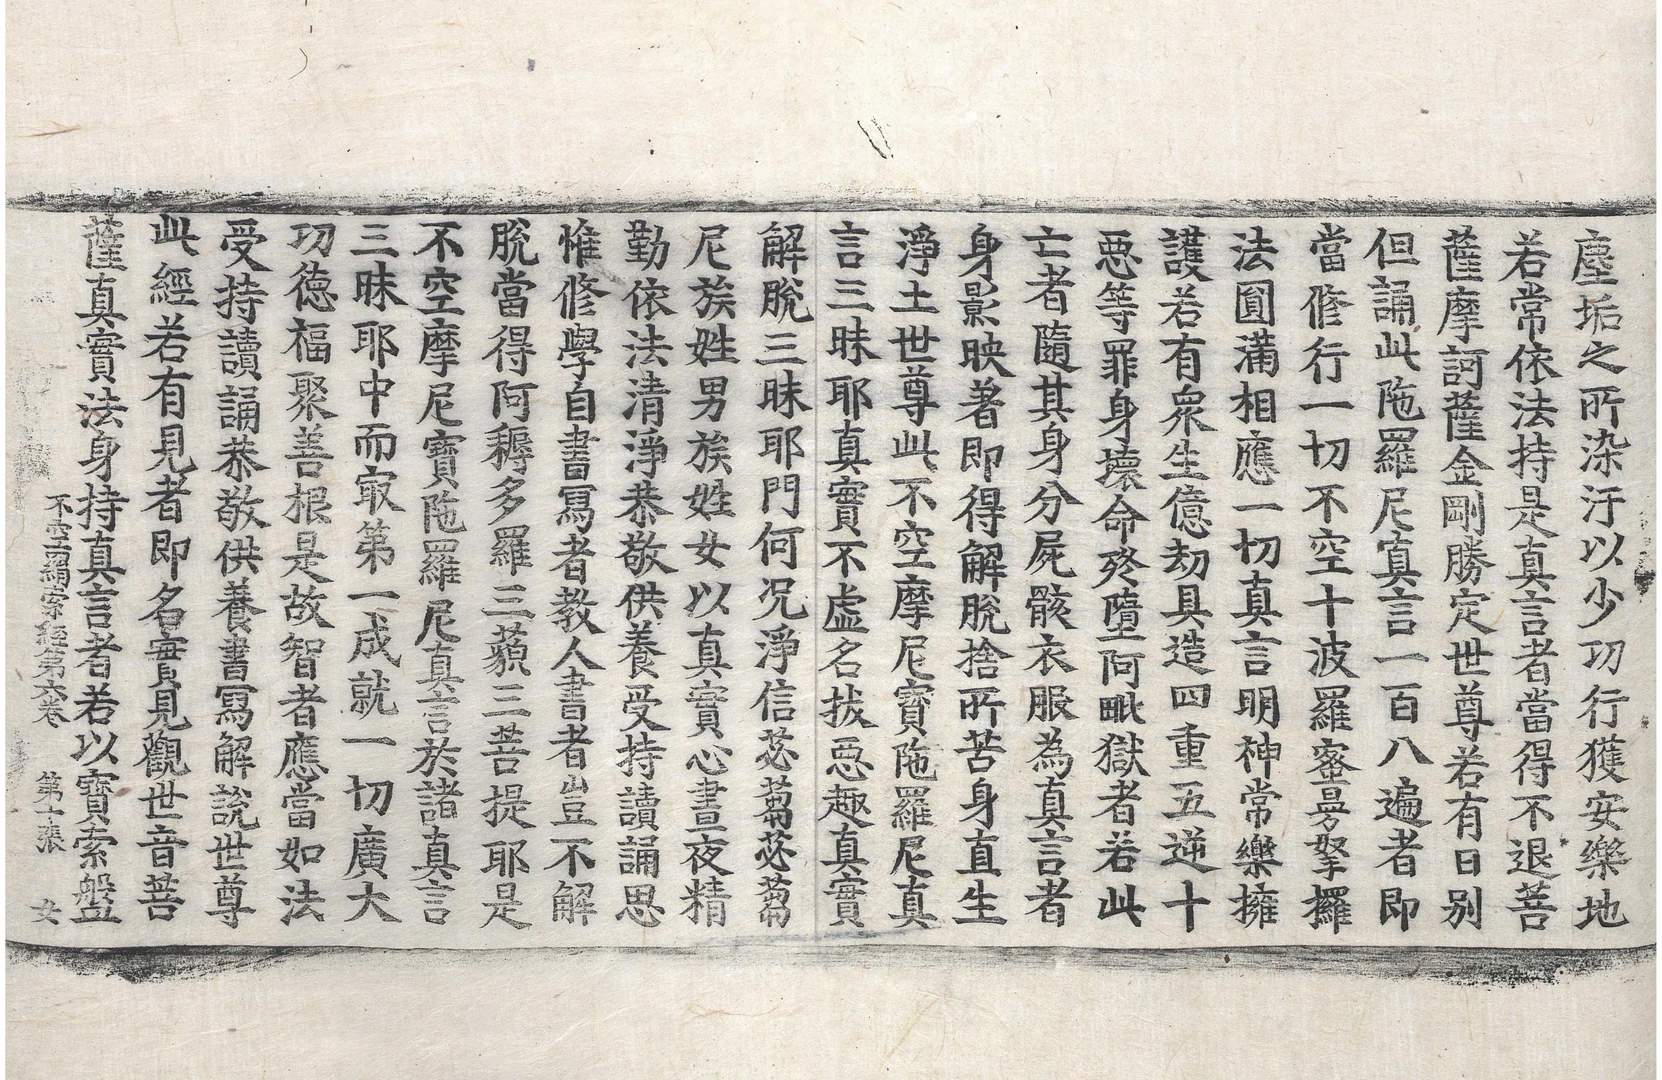 塵垢之所染汙以少功行獲安樂地
若常依法持是真言者當得不退菩
薩摩訶薩金剛勝定世尊若有日別
但誦此陁羅尼真言一百八遍者即
當修行一切不空十波羅蜜曼拏攞
法圓滿相應一切真言明神常樂擁
護若有衆生億劫具造四重五逆十
惡等罪身壞命終墮阿毗獄者若此
亡者隨其身分屍骸衣服為真言者
身影映著即得解脫捨所苦身直生
淨土世尊此不空摩尼寶陁羅尼真
言三昧耶真實不虛名拔惡趣真實
解脫三昧耶門何況淨信苾蒭苾蒭
尼族姓男族姓女以真實心晝夜精
勤依法清淨恭敬供養受持讀誦思
惟修學自書寫者教人書者豈不解
脫當得阿耨多羅三藐三菩提耶是
不空摩尼寶陁羅尼真言於諸真言
三昧耶中而㝡第一成就一切廣大
功德福聚善根是故智者應當如法
受持讀誦恭敬供養書寫解說世尊
此經若有見者即名實見觀世音菩
薩真實法身持真言者若以寶索盤
不空羂索經第六卷　第十張　女